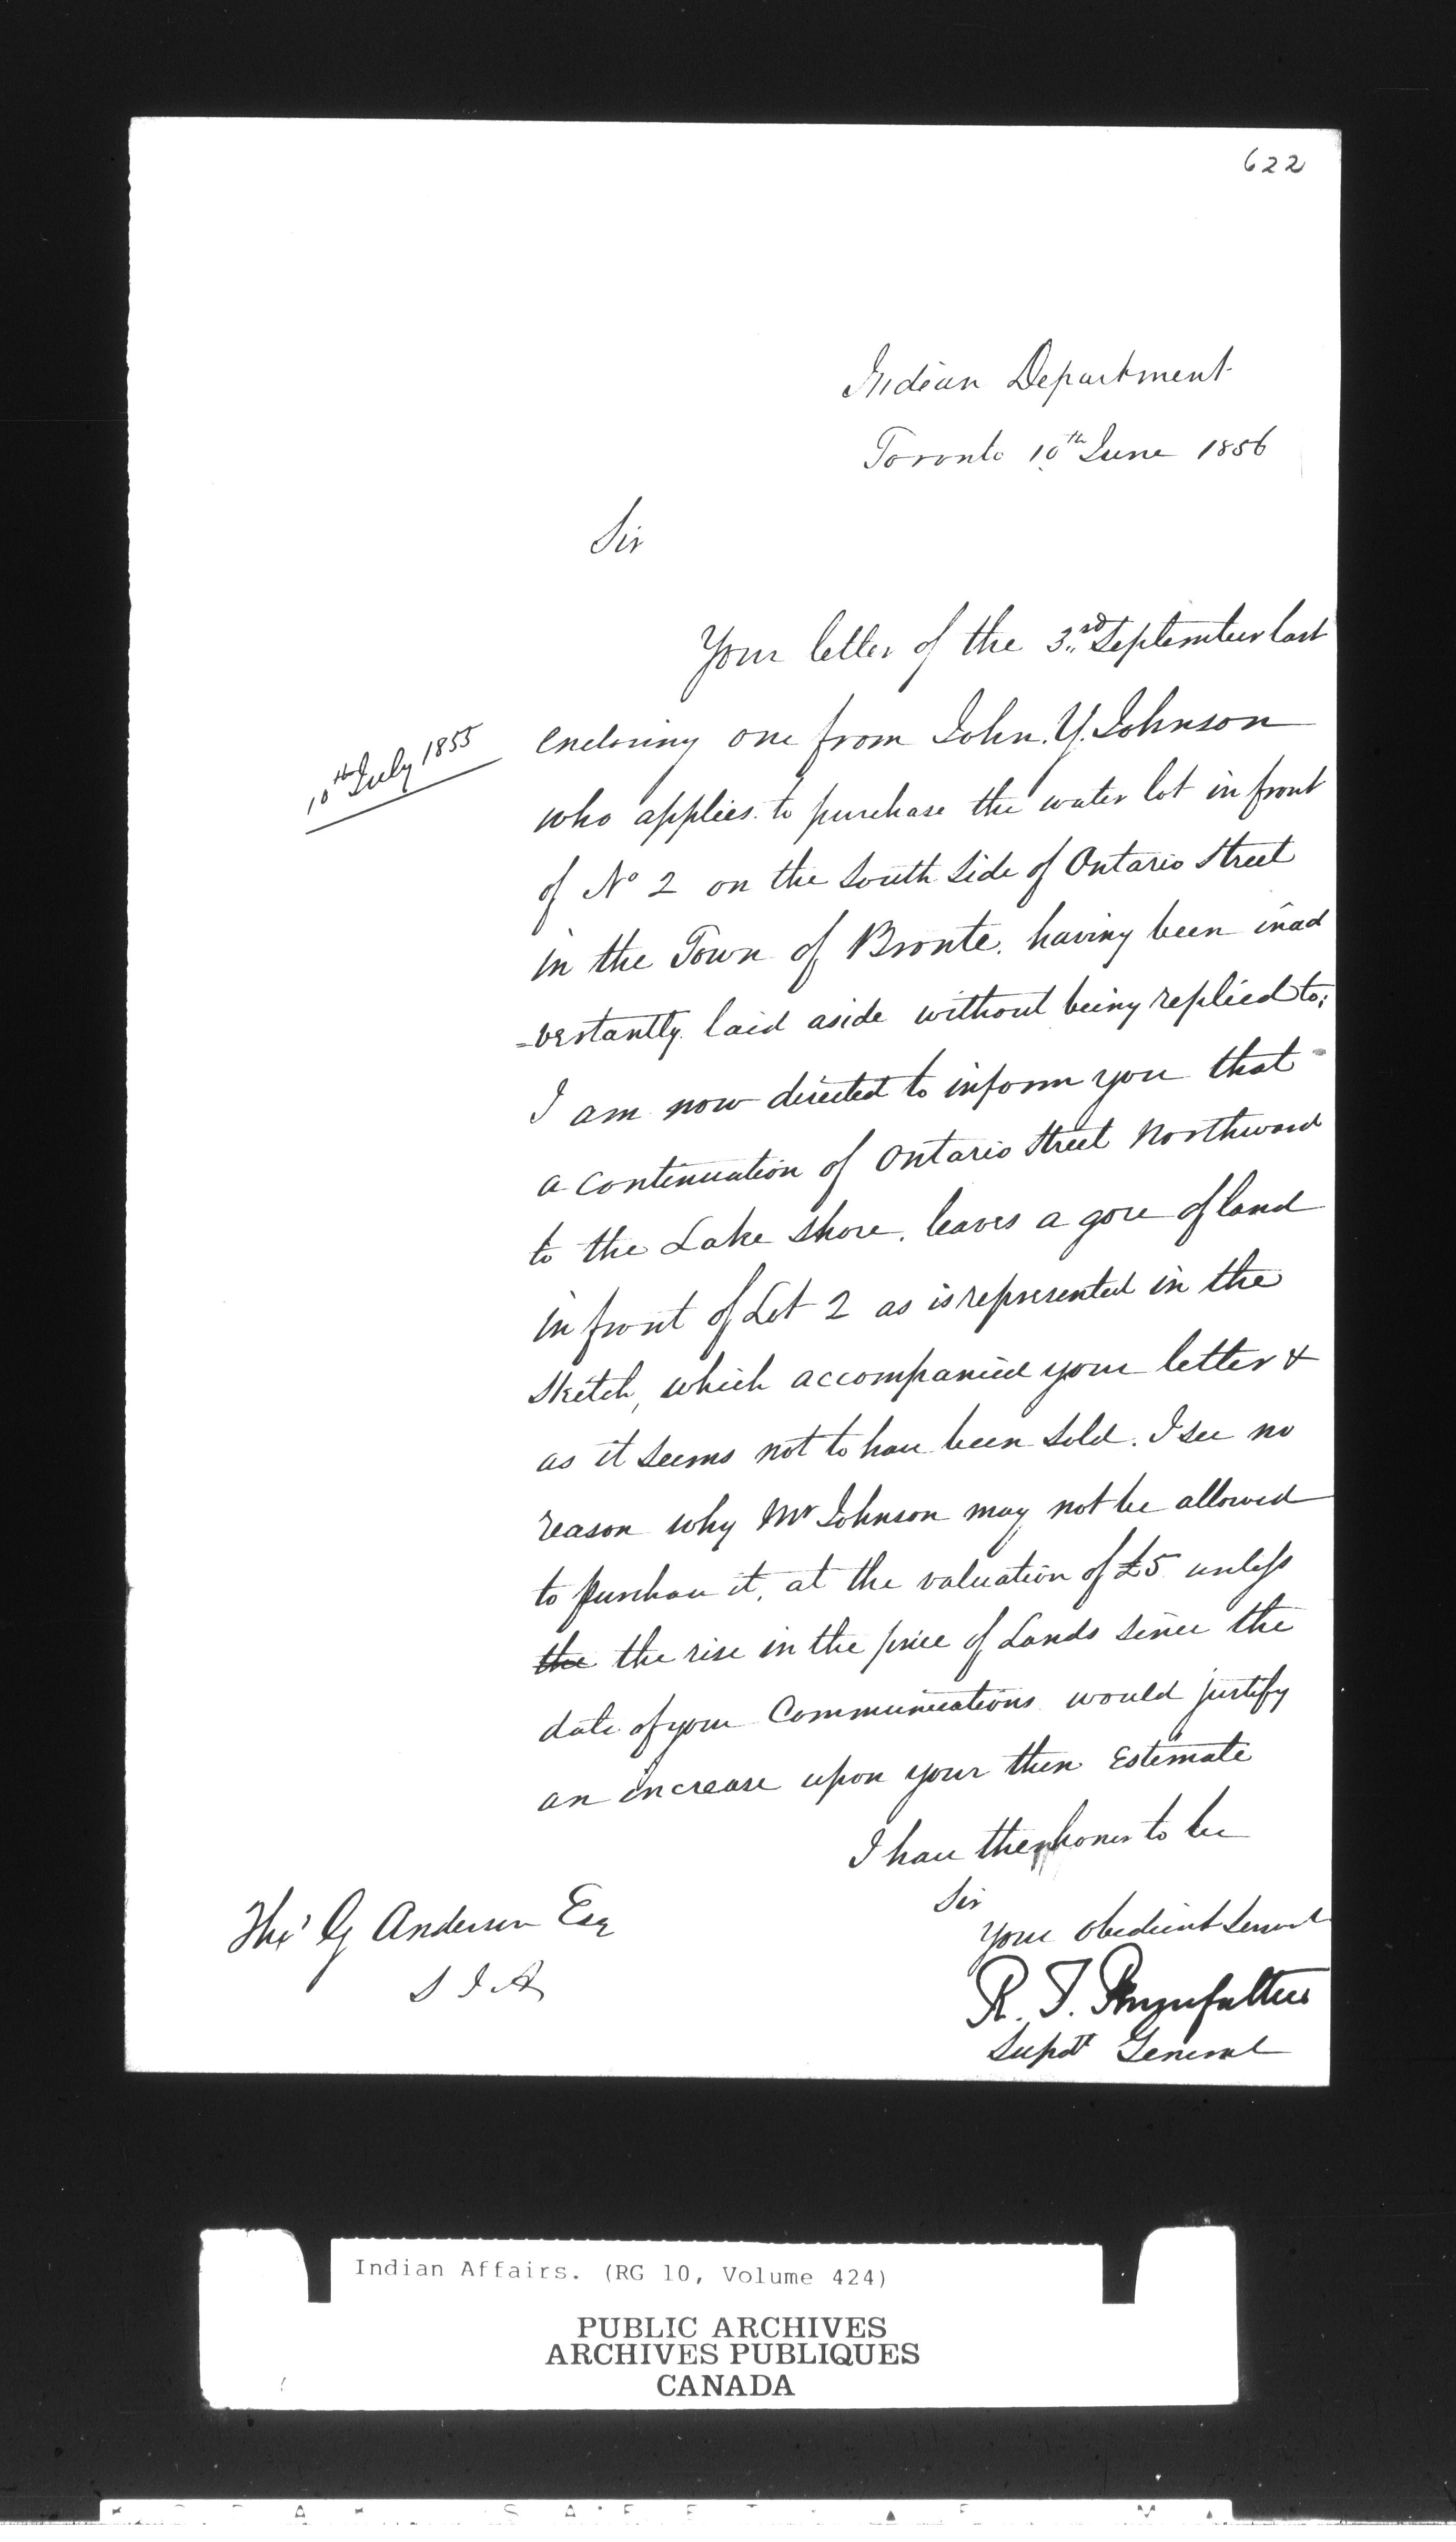 622
Indian Department
Toronto 10th June 1856
Sir
Your letter of the 3rd September last
10th July 1855
enclosing one from John. Y. Johnson
who applies to purchase the water lot in front
of No 2 on the South Side of Ontario Street
in the Town of Bronte, having been inad
=vertantly laid aside without being replied to;
I am now directed to inform you that
a continuation of Ontario Street Northward
to the Lake shore, leaves a gore of land
in front of Lot 2 as is represented in the
Sketch, which accompanied your letter &
as it seems not to have been Sold. I see no
reason why Mr Johnson may not be allowed
to purchase it, at the valuation of £5 unless
the the rise in the price of Lands since the
date of your Communications would justify
an increase upon your then Estimate
I have the honor to be
Sir
Your Obedient Servant
R. T. Pennefather
Supdt General
Thos G Anderson Esq
S I A
Indian Affairs. (RG 10, Volume 424)
PUBLIC ARCHIVES
ARCHIVES PUBLIQUES
CANADA